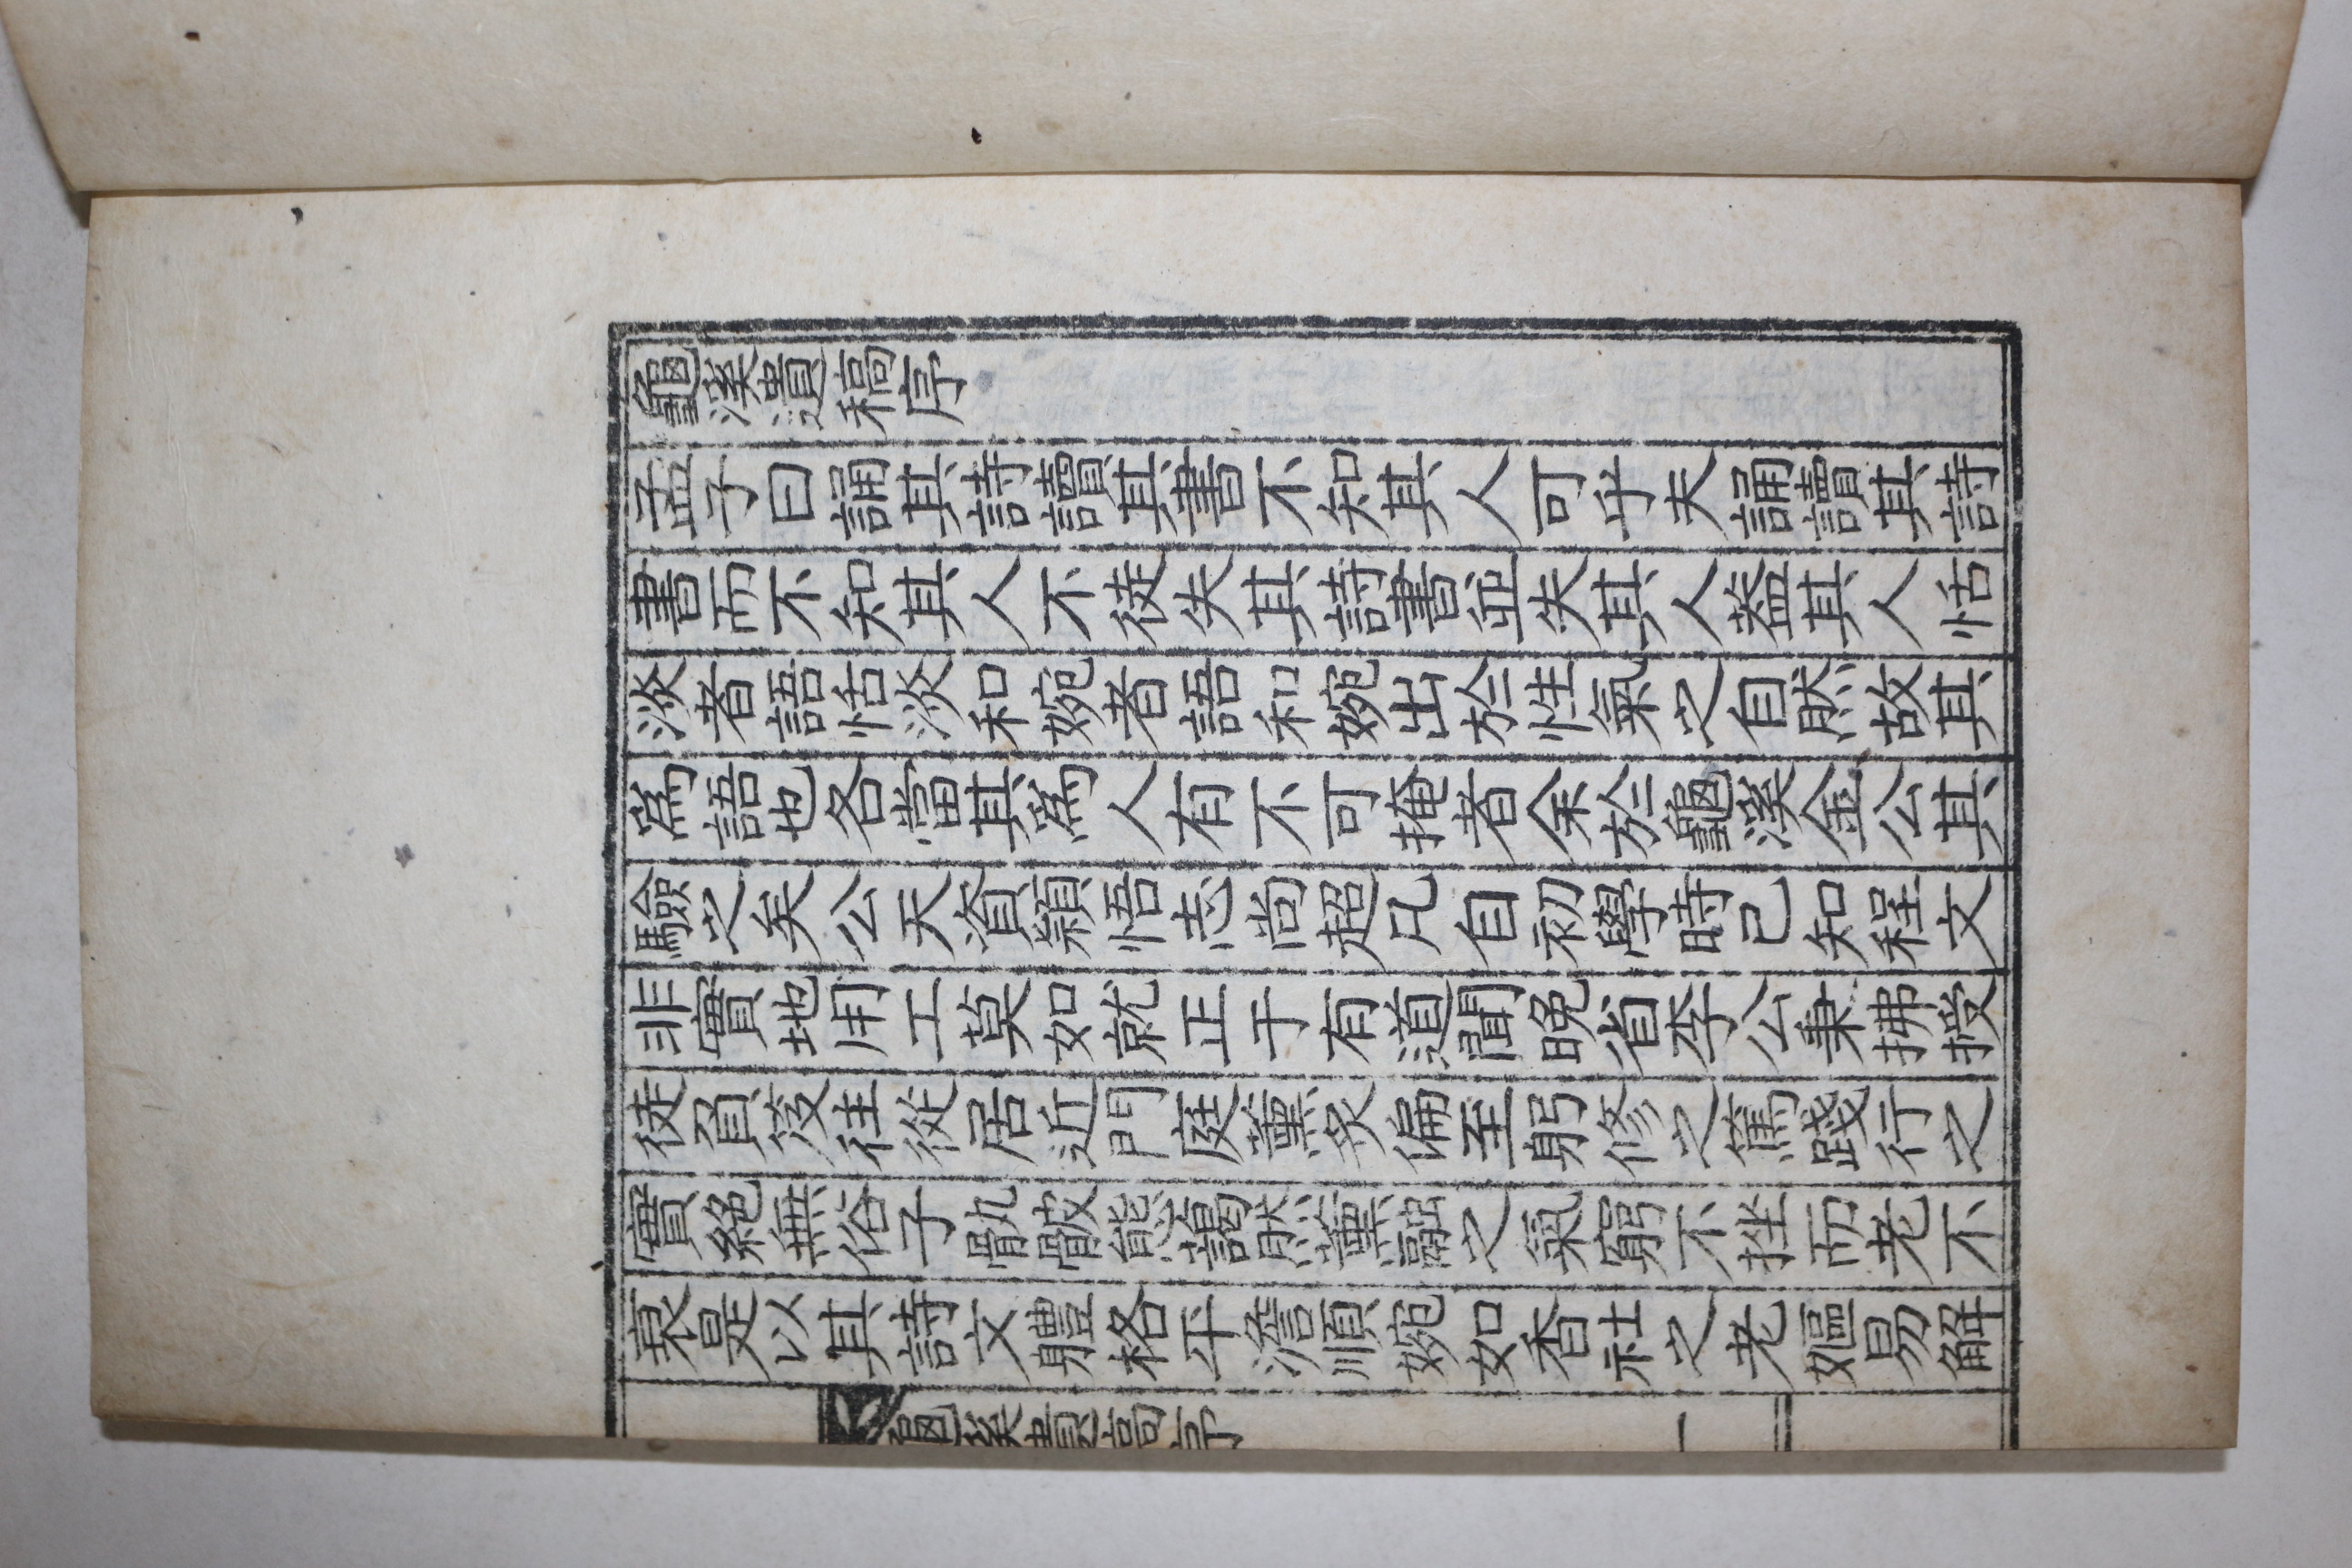 龜溪遺稿序
孟子曰誦其詩讀其書不知其人可乎夫誦讀其詩
書而不知其人不徒失其詩書並失其人盖其人恬
淡者語恬淡和婉者語和婉出於性氣之自然故其
爲語也各當其爲人有不可掩者余於龜溪金公其
驗之矣公天資穎悟志尙超凡自初學時已知程文
非實地用工莫如就正于有道聞晩省李公秉拂授
徒負笈往從居近門庭薰炙偏至躬修之篤踐行之
實絕無俗子骩骳態藹然薰瀜之氣窮不挫而老不
衰是以其詩文體格平澹順婉如香社之老嫗易解
龜溪遺稿序 一